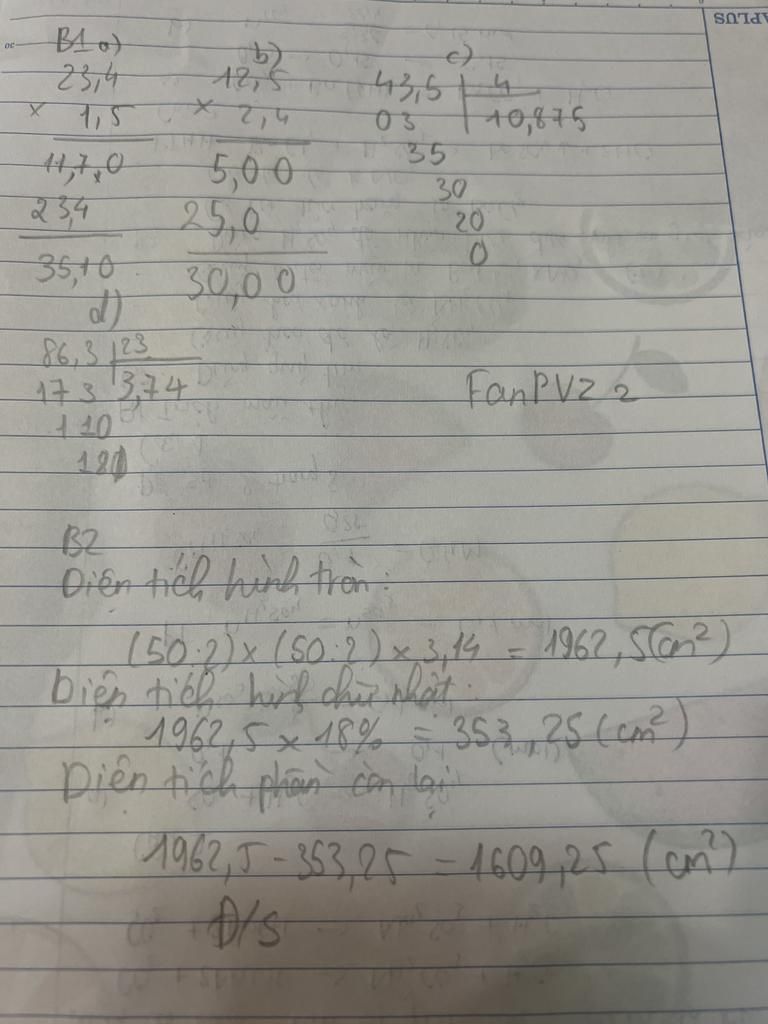 B1 a)
23,4
× 1,5
11,7,0
23,4
35,10
b)
12,5
× 2,4
5,00
25,0
30,00
c)
43,5 4
03 10,875
35
30
20
0
d)
86,3 23
173 3,74
110
18
FanPVZ 2
B2
Diện tích hình tròn:
(50:2) × (50:2) × 3,14 = 1962,5(cm²)
Diện tích hình chữ nhật:
1962,5 × 18% = 353,25 (cm²)
Diện tích phần còn lại
1962,5 - 353,25 = 1609,25 (cm²)
Đ/S